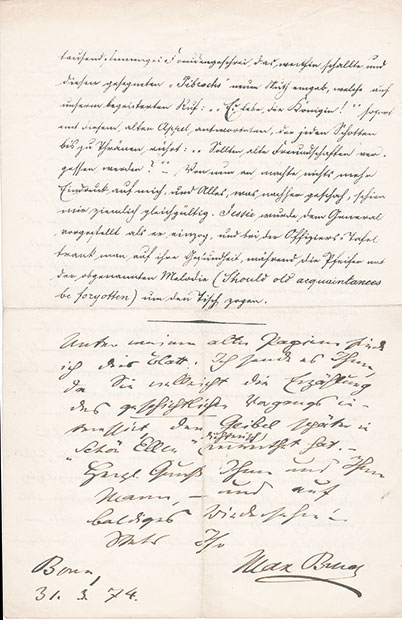 tausendstimmiges Freudengeschrei, das weithin schallte und
diesen gesegneten „Pibrochs" neuen Muth eingab, welche auf
unsern begeisterten Ruf: „Es lebe die Königin!" sofort
mit diesem alten Appel antworteten, der jeden Schotten
bis zu Thränen rührt: „Sollten alte Freundschaften ver-
gessen werden?" – Von nun an machte nichts mehr
Eindruck auf mich, und Alles, was nachher geschah, schien
mir ziemlich gleichgültig. Jessie wurde dem General
vorgestellt als er einzog, und bei der Offiziers-Tafel
trank man auf ihre Gesundheit, während die Pfeifer mit
der obgenannten Melodie (Should old acquaintances
be forgotten) um den Tisch zogen.
Unter meinen alten Papieren finde
ich dies Blatt. Ich sende es Ihnen,
da Sie vielleicht die Erzählung
des geschichtlichen Vorgangs in-
teressirt, den Geibel später in
"Schön Ellen" dichterisch verwerthet hat. –
Herzl. Gruß Ihnen und Ihrem
Mann – und auf
baldiges Wiedersehen!
Stets Ihr
Max Bruch
Bonn,
31. 3. 74.